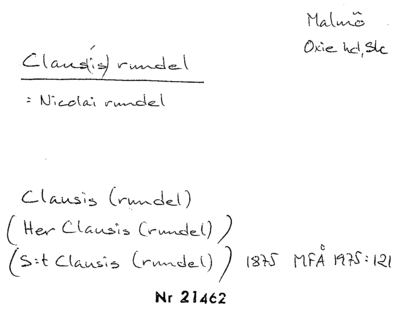 Malmö
Oxie hd, Sk
Claus(is) rundel
= Nicolai rundel
Clausis (rundel)
(Her Clausis (rundel))
(S:t Clausis (rundel)) 1875 MFÅ 1975:121
Nr 21462